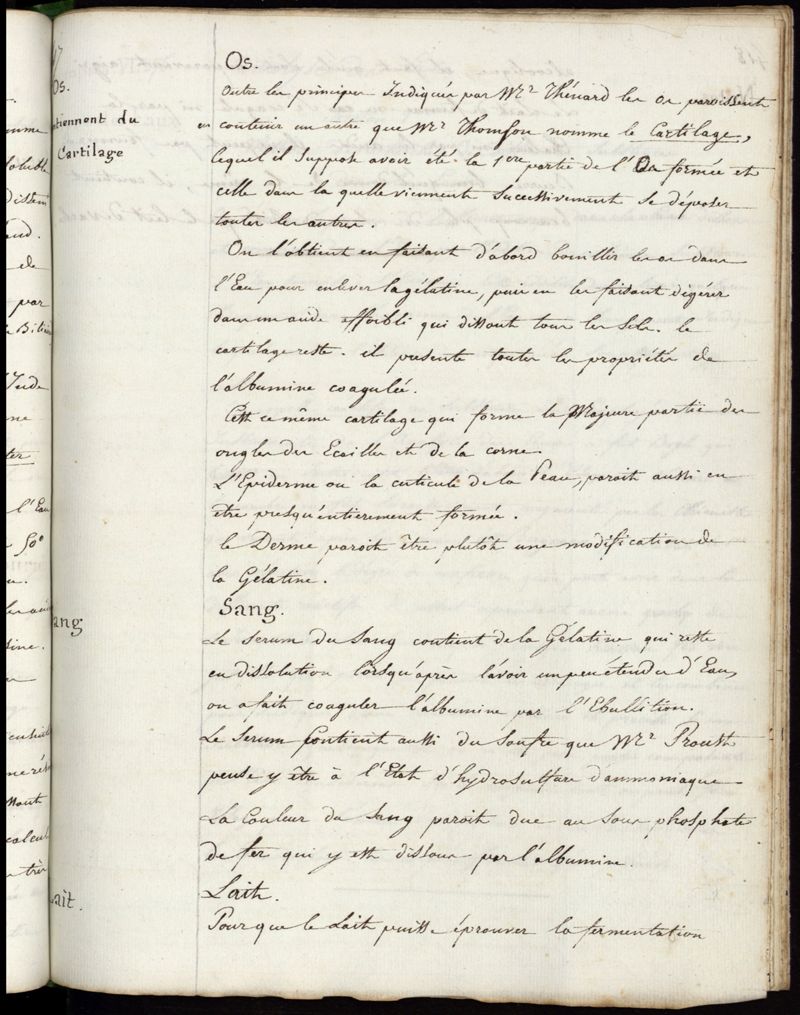 Os.
Outre les principes Indiqués par Mr. Thénard les os paroissent
en contenir un autre que Mr. Thomson nomme le Cartilage,
lequel il suppose avoir été la 1ere partie de l'Os formée et
celle dans la quelle viennent successivement se déposer
toutes les autres.
On l'obtient en faisant d'abord bouillir les os dans
l'Eau pour enlever la gélatine, puis en les faisant digérer
dans un acide affoibli qui dissout tous les sels. le
cartilage reste. il presente toutes les propriétés de
l'albumine coagulée.
C'est ce même cartilage qui forme la Majeure partie des
ongles des Ecailles et de la corne.
L'Epiderme ou la cuticule de la Peau, paroit aussi en
être presqu'entierement formée.
le Derme paroit être plutôt une modification de
la Gélatine.
Sang.
Le serum du sang contient de la Gélatine qui reste
en dissolution lorsqu'après l'avoir un peu étendu d'Eau,
on a fait coaguler l'albumine par l'Ebullition.
Le serum contient aussi du soufre que Mr. Proust
pense y être à l'Etat d'hydrosulfure d'ammoniaque
La Couleur du sang paroit due au sous phosphate
de fer qui y est dissous par l'albumine.
Lait.
Pour que le Lait puisse éprouver la fermentation
Os.
contiennent du
Cartilage
Sang
Lait.